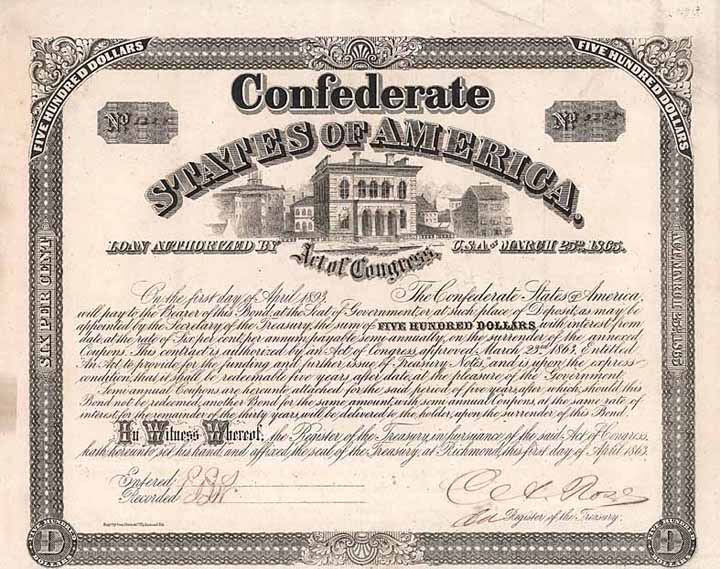 FIVE HUNDRED DOLLARS
FIVE HUNDRED DOLLARS
Confederate
STATES OF AMERICA.
No
No
LOAN AUTHORIZED BY Act of Congress, C.S.A. OF MARCH 23RD 1863.
SIX PER CENT
On the first day of April 1893, The Confederate States of America,
will pay to the Bearer of this Bond, at the Seat of Government, or at such place of Deposit, as may be
appointed by the Secretary of the Treasury, the sum of FIVE HUNDRED DOLLARS, with interest from
date, at the rate of Six per cent. per annum, payable semi annually, on the surrender of the annexed
Coupons. This contract is authorized by an Act of Congress approved March 23rd 1863, Entitled
An Act to provide for the funding and further issue of Treasury Notes, and is upon the express
condition, that it shall be redeemable five years after date, at the pleasure of the Government.
Semi annual Coupons are hereunto attached for the said period of five years after which, should this
Bond not be redeemed, another Bond for the same amount, with semi annual Coupons, at the same rate of
interest, for the remainder of the thirty years, will be delivered to the holder, upon the surrender of this Bond.
In Witness Whereof, the Register of the Treasury, in pursuance of the said Act of Congress,
hath hereunto set his hand, and affixed, the seal of the Treasury, at Richmond, this first day of April 1863.
Entered
Recorded
Register of the Treasury.
FIVE HUNDRED
D
DOLLARS
FIVE HUNDRED
D
DOLLARS